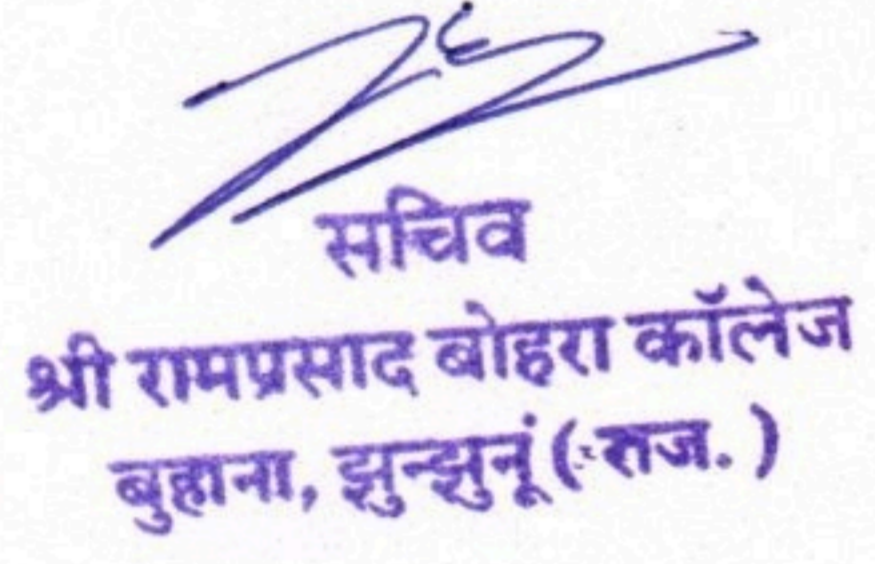 सचिव
श्री रामप्रसाद बोहरा कॉलेज
बुहाना, झुन्झुनूं (राज.)